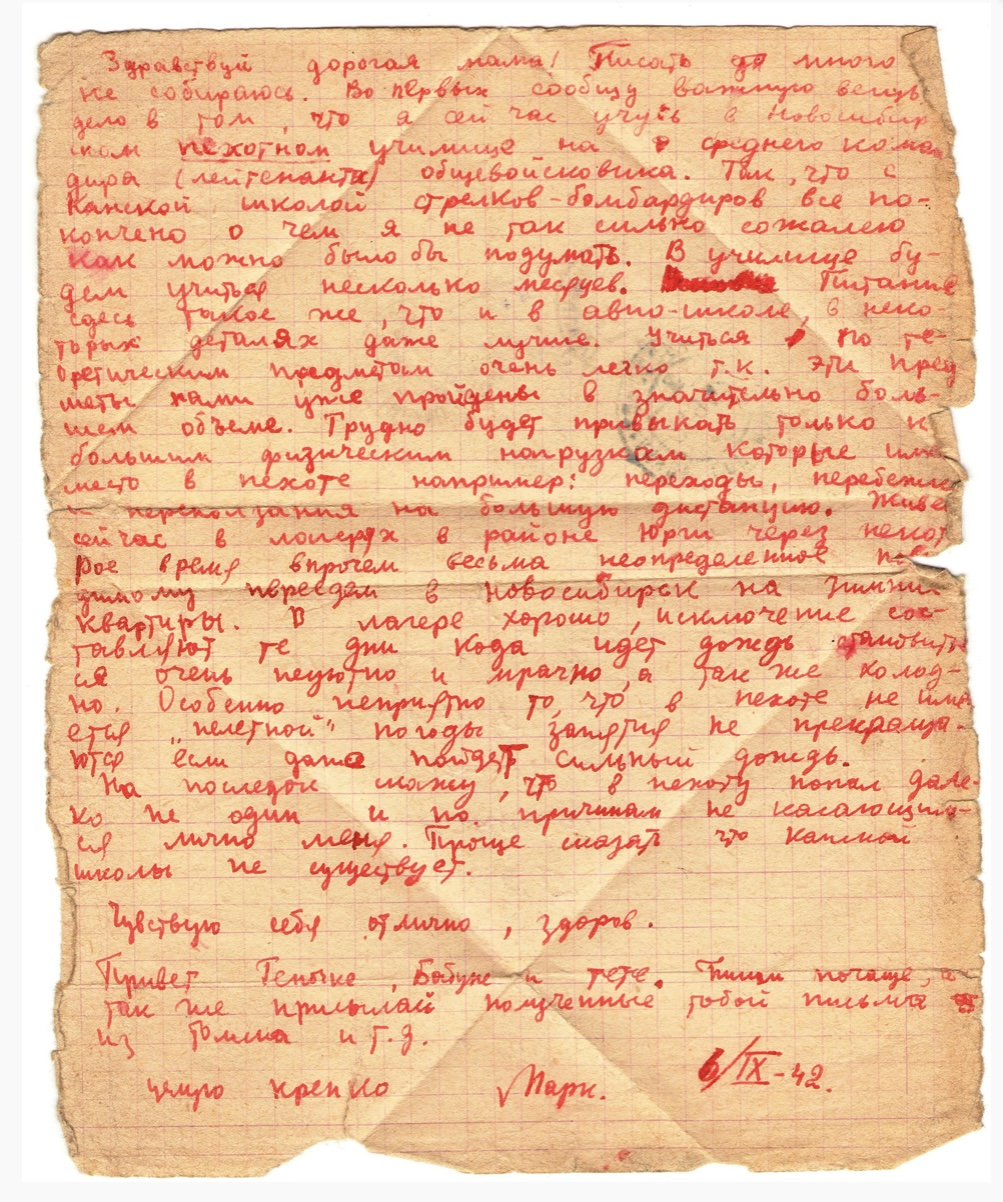 Здравствуй дорогая мама! Писать много
не собираюсь. Во первых сообщу важную вещь
дело в том, что я сейчас учусь в новосибир
ском пехотном училище на среднего кома
дира (лейтенанта) общевойсковика. Так, что с
Канской школой стрелков-бомбардиров все по-
кончено о чем я не так сильно сожалею
как можно было бы подумать. В училище бу-
дем учиться несколько месяцев. Питание
здесь такое же, что и в авио-школе, в неко-
торых деталях даже лучше. Учиться по те-
оретическим предметам очень легко т.к. эти пред
меты нами уже пройдены в значительно боль-
шем объеме. Трудно будет привыкать только к
большим физическим нагрузкам которые име
место в пехоте например: переходы, перебежки
и переползания на большую дистанцию. Живе
сейчас в лагерях в районе Юрги через некот
рое время впрочем весьма неопределенное пови
димому переедем в Новосибирск на зимни
квартиры. В лагере хорошо, исключение сос-
тавляют те дни кода идет дождь становить
ся очень неуютно и мрачно, а так же холод-
но. Особенно неприятно то, что в пехоте не име
ется „нелетной" погоды занятия не прекраща-
ются если даже пойдет сильный дождь.
На последок скажу, что в пехоту попал дале-
ко не один и по причинам не касающим-
ся лично меня. Проще сказать что канской
школы не существует.
Чувствую себя отлично, здоров.
Привет Геночке, Бабуне и тете. Пиши почаще, а
так же присылай полученные тобой письма
из Томска и т.д.
целую крепко Марк. 6/IX-42.